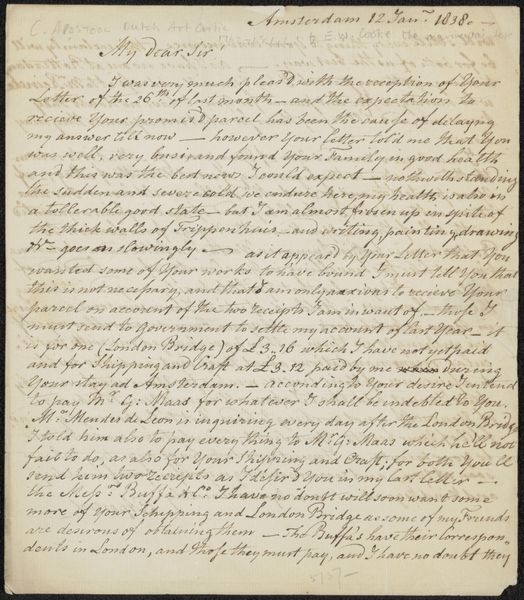 C. APOSTOOL Dutch Art Critic
Amsterdam 12 Janʸ. 1838. —
to E. W. Cooke the
My Dear Sir
I was very much pleas'd with the reception of Your
Letter of the 26th of last month — and the expectation to
recieve Your promis'd parcel has been the cause of delaying
my answer till now — however Your letter told me that You
was well, very busi and found Your Family in good health
and this was the best news I could expect — nothwithstanding
the sudden and severe cold we endure here, my health is also in
a tollerable good state — but I am almost frosen up in spite of
the thick walls of Trippenhuis — and writing, painting, drawing
&c — goes on slowingly — as it appear'd by Your Letter that You
wanted some of Your works to have bound I must tell You that
this is not necessary, and that I am only anxious to recieve Your
parcel on account of the two receipts I am in want of — those I
must send to Government to settle my account of last Year — it
is for one (London Bridge) of £3..16 which I have not yet paid
and for Shipping and Craft at £3.12 paid by me during
Your stay ad Amsterdam. — according to Your desire I intend
to pay Mr. G. Maas for whatever I shall be indebted to You.
Mr. Mendes de Leon is inquiring every day after the London Bridge
I told him also to pay every thing to Mr. G. Maas which he'll not
fail to do, as also for Your Shipping and Craft, for both You'll
send him two receipts as I desir'd You in my last letter —
the Messrs. Buffa & Co. I have no doubt will soon want some
more of Your Schipping and London Bridge as some of my Friends
are desirous of obtaining them — The Buffa's have their correspon
dents in London, and those they must pay, and I have no doubt they